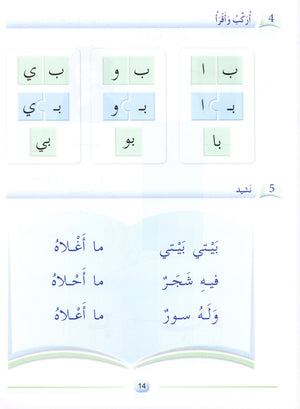 4 أُرَكِّبُ وَأَقْرَأُ
ب ا ب و ب ي
بـ ا بـ و بـ ي
با بو بي
5 نَشيد
بَيْتي بَيْتي ما أَغْلاهُ
فيهِ شَجَرٌ ما أَحْلاهُ
وَلَهُ سورٌ ما أَعْلاهُ
14